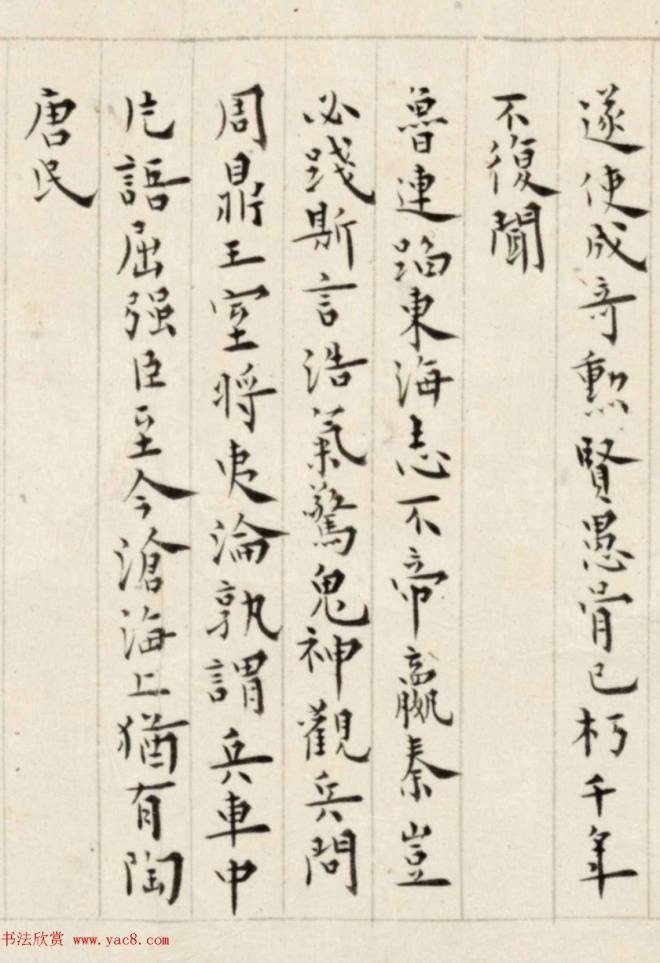 遂使成奇勲賢愚骨已朽千年
不復聞
魯連蹈東海志不帝嬴秦豈
必踐斯言浩氣驚鬼神觀兵問
周鼎王室將夷淪孰謂兵車中
片語屈强臣至今滄海上猶有陶
唐民
书法欣赏 www.yac8.com